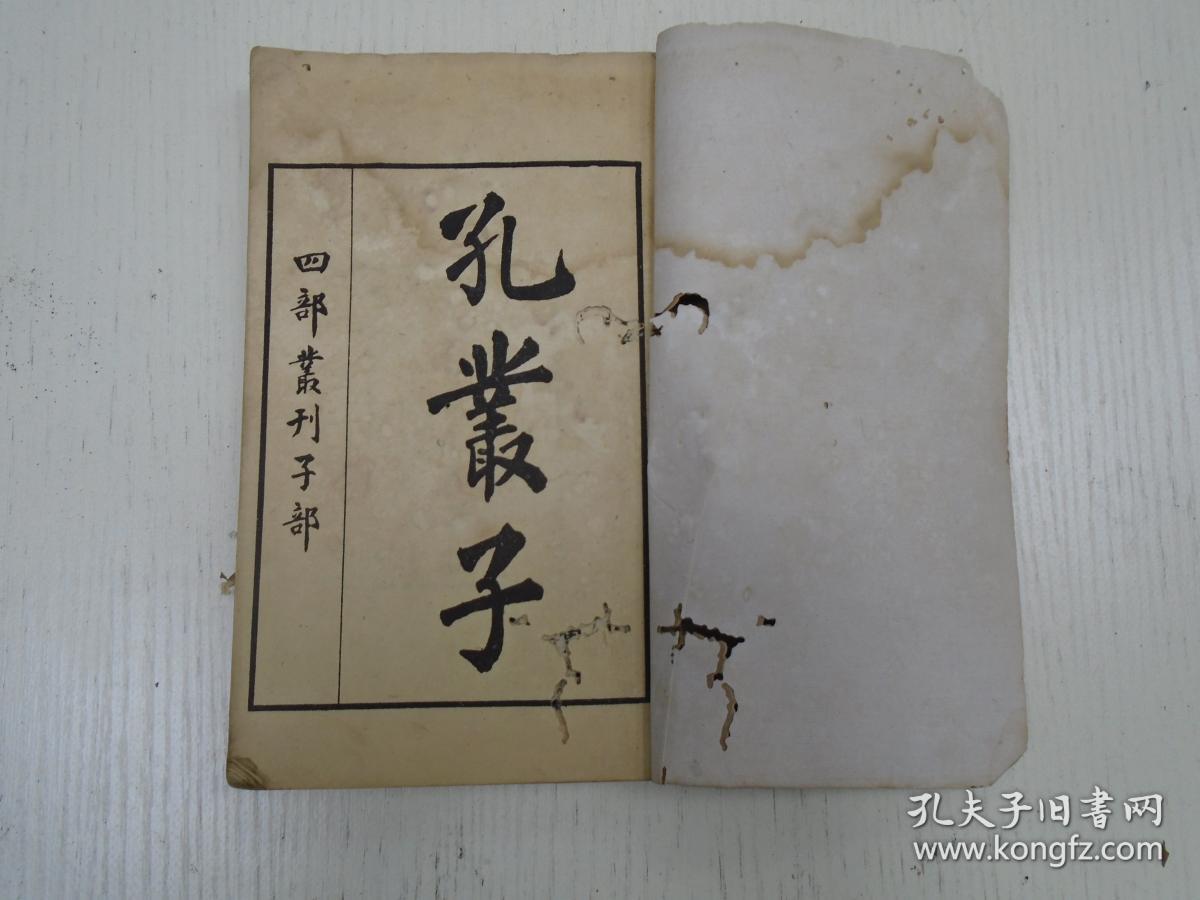 孔叢子
四部叢刊子部
孔夫子旧書网
www.kongfz.com